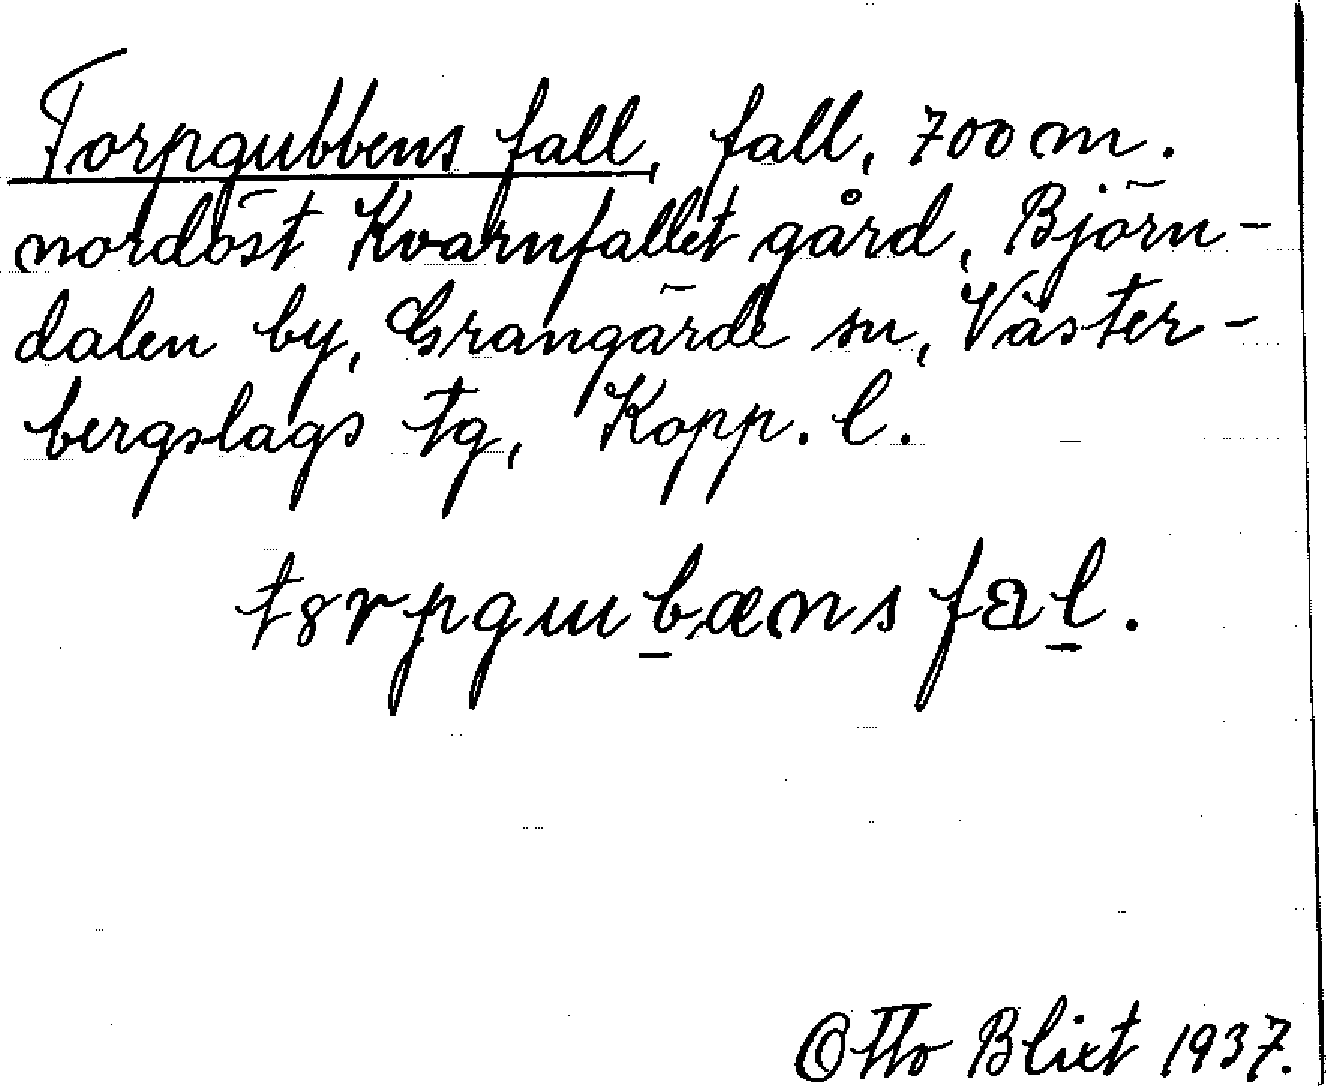 Torpgubbens fall, fall, 700 m.
nordöst Kvarnfallet gård, Björn-
dalen by, Grangärde sn, Väster-
bergslags tg, Kopp. l.
Otto Blixt 1937.